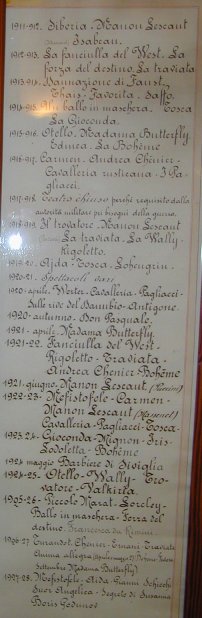 1911-912. Siberia-Manon Lescaut
Isabeau.
1912-913. La fanciulla del West. La
forza del destino. La traviata
1913-914. Dannazione di Faust.
Thais. Favorita. Saffo.
1914-915. Un ballo in maschera. Tosca
La Gioconda.
1915-916. Otello. Madama Butterfly
Edmea. La Bohème
1916-917. Carmen. Andrea Chénier.
Cavalleria rusticana. I Pa-
gliacci.
1917-918. Teatro chiuso perchè requisito dalla
autorità militare pei bisogni della guerra.
1918-919. Il trovatore. Manon Lescaut
La traviata. La Wally.
Rigoletto.
1919-20. Aida. Tosca. Lohengrin.
1920-21. Spettacoli vari
1920-aprile. Werter. Cavalleria. Pagliacci.
Sulle rive del Danubio. Antigone.
1920-autunno. Don Pasquale.
1921. aprile. Madama Butterfly.
1921-22. Fanciulla del West-
Rigoletto-Traviata-
Andrea Chenier-Bohême
1921. giugno. Manon Lescaut (Puccini)
1922-23. Mefistofele-Carmen-
Manon Lescaut (Massenet)
Cavalleria-Pagliacci-Tosca-
1923.24. Gioconda-Mignon-Iris-
Lodoletta-Bohême
1924 maggio Barbiere di Siviglia
1924-25. Otello-Wally-Tro-
vatore-Valkiria.
1925-26. Piccolo Marat. Loreley-
Ballo in maschera-Forza del
destino. Francesca da Rimini
1926-27. Turandot. Chenier. Ernani. Traviata
Anima allegra
Settembre Madama Butterfly
1927-28. Mefistofele. Aida. Gianni Schicchi
Suor Angelica. Segreto di Susanna
Boris Godunof